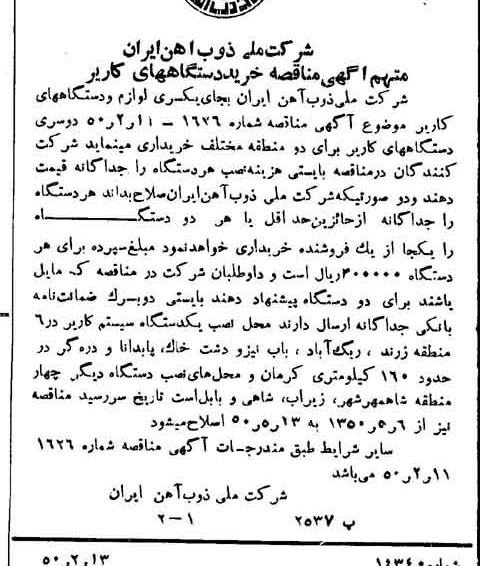 شرکت ملی ذوب آهن ایران
متمم آگهی مناقصه خرید دستگاههای کاریر
شرکت ملی ذوب آهن ایران بجای یکسری لوازم و دستگاههای
کاریر موضوع آگهی مناقصه شماره ۱۶۲۶ – ۱۱ر۲ر۵۰ دوسری
دستگاههای کاریر برای دو منطقه مختلف خریداری مینماید شرکت
کنندگان در مناقصه بایستی هزینه نصب هر دستگاه را جداگانه قیمت
دهند و در صورتیکه شرکت ملی ذوب آهن ایران صلاح بداند هر دستگاه
را جداگانه از حائزین حداقل یا هر دو دستگاه
را یکجا از یک فروشنده خریداری خواهد نمود مبلغ سپرده برای هر
دستگاه ۴۰۰۰۰۰ ریال است و داوطلبان شرکت در مناقصه که مایل
باشند برای دو دستگاه پیشنهاد دهند بایستی دو برگ ضمانت‌نامه
بانکی جداگانه ارسال دارند محل نصب یکدستگاه سیستم کاریر در ۶
منطقه زرند ، ریگ آباد ، باب نیزو دشت خاك، پابدانا و دره‌گر در
حدود ۱۶۰ کیلومتری کرمان و محل‌های نصب دستگاه دیگر چهار
منطقه شاهمهرشهر، زیراب، شاهی و بابل است تاریخ سررسید مناقصه
نیز از ۶ر۵ر۱۳۵۰ به ۱۳ر۵ر۵۰ اصلاح میشود
سایر شرایط طبق مندرجات آگهی مناقصه شماره ۱۶۲۶
۱۱ر۲ر۵۰ می‌باشد
شرکت ملی ذوب آهن ایران
پ ۲۵۳۷ ۱–۲
۱۳ر۲ر۵۰